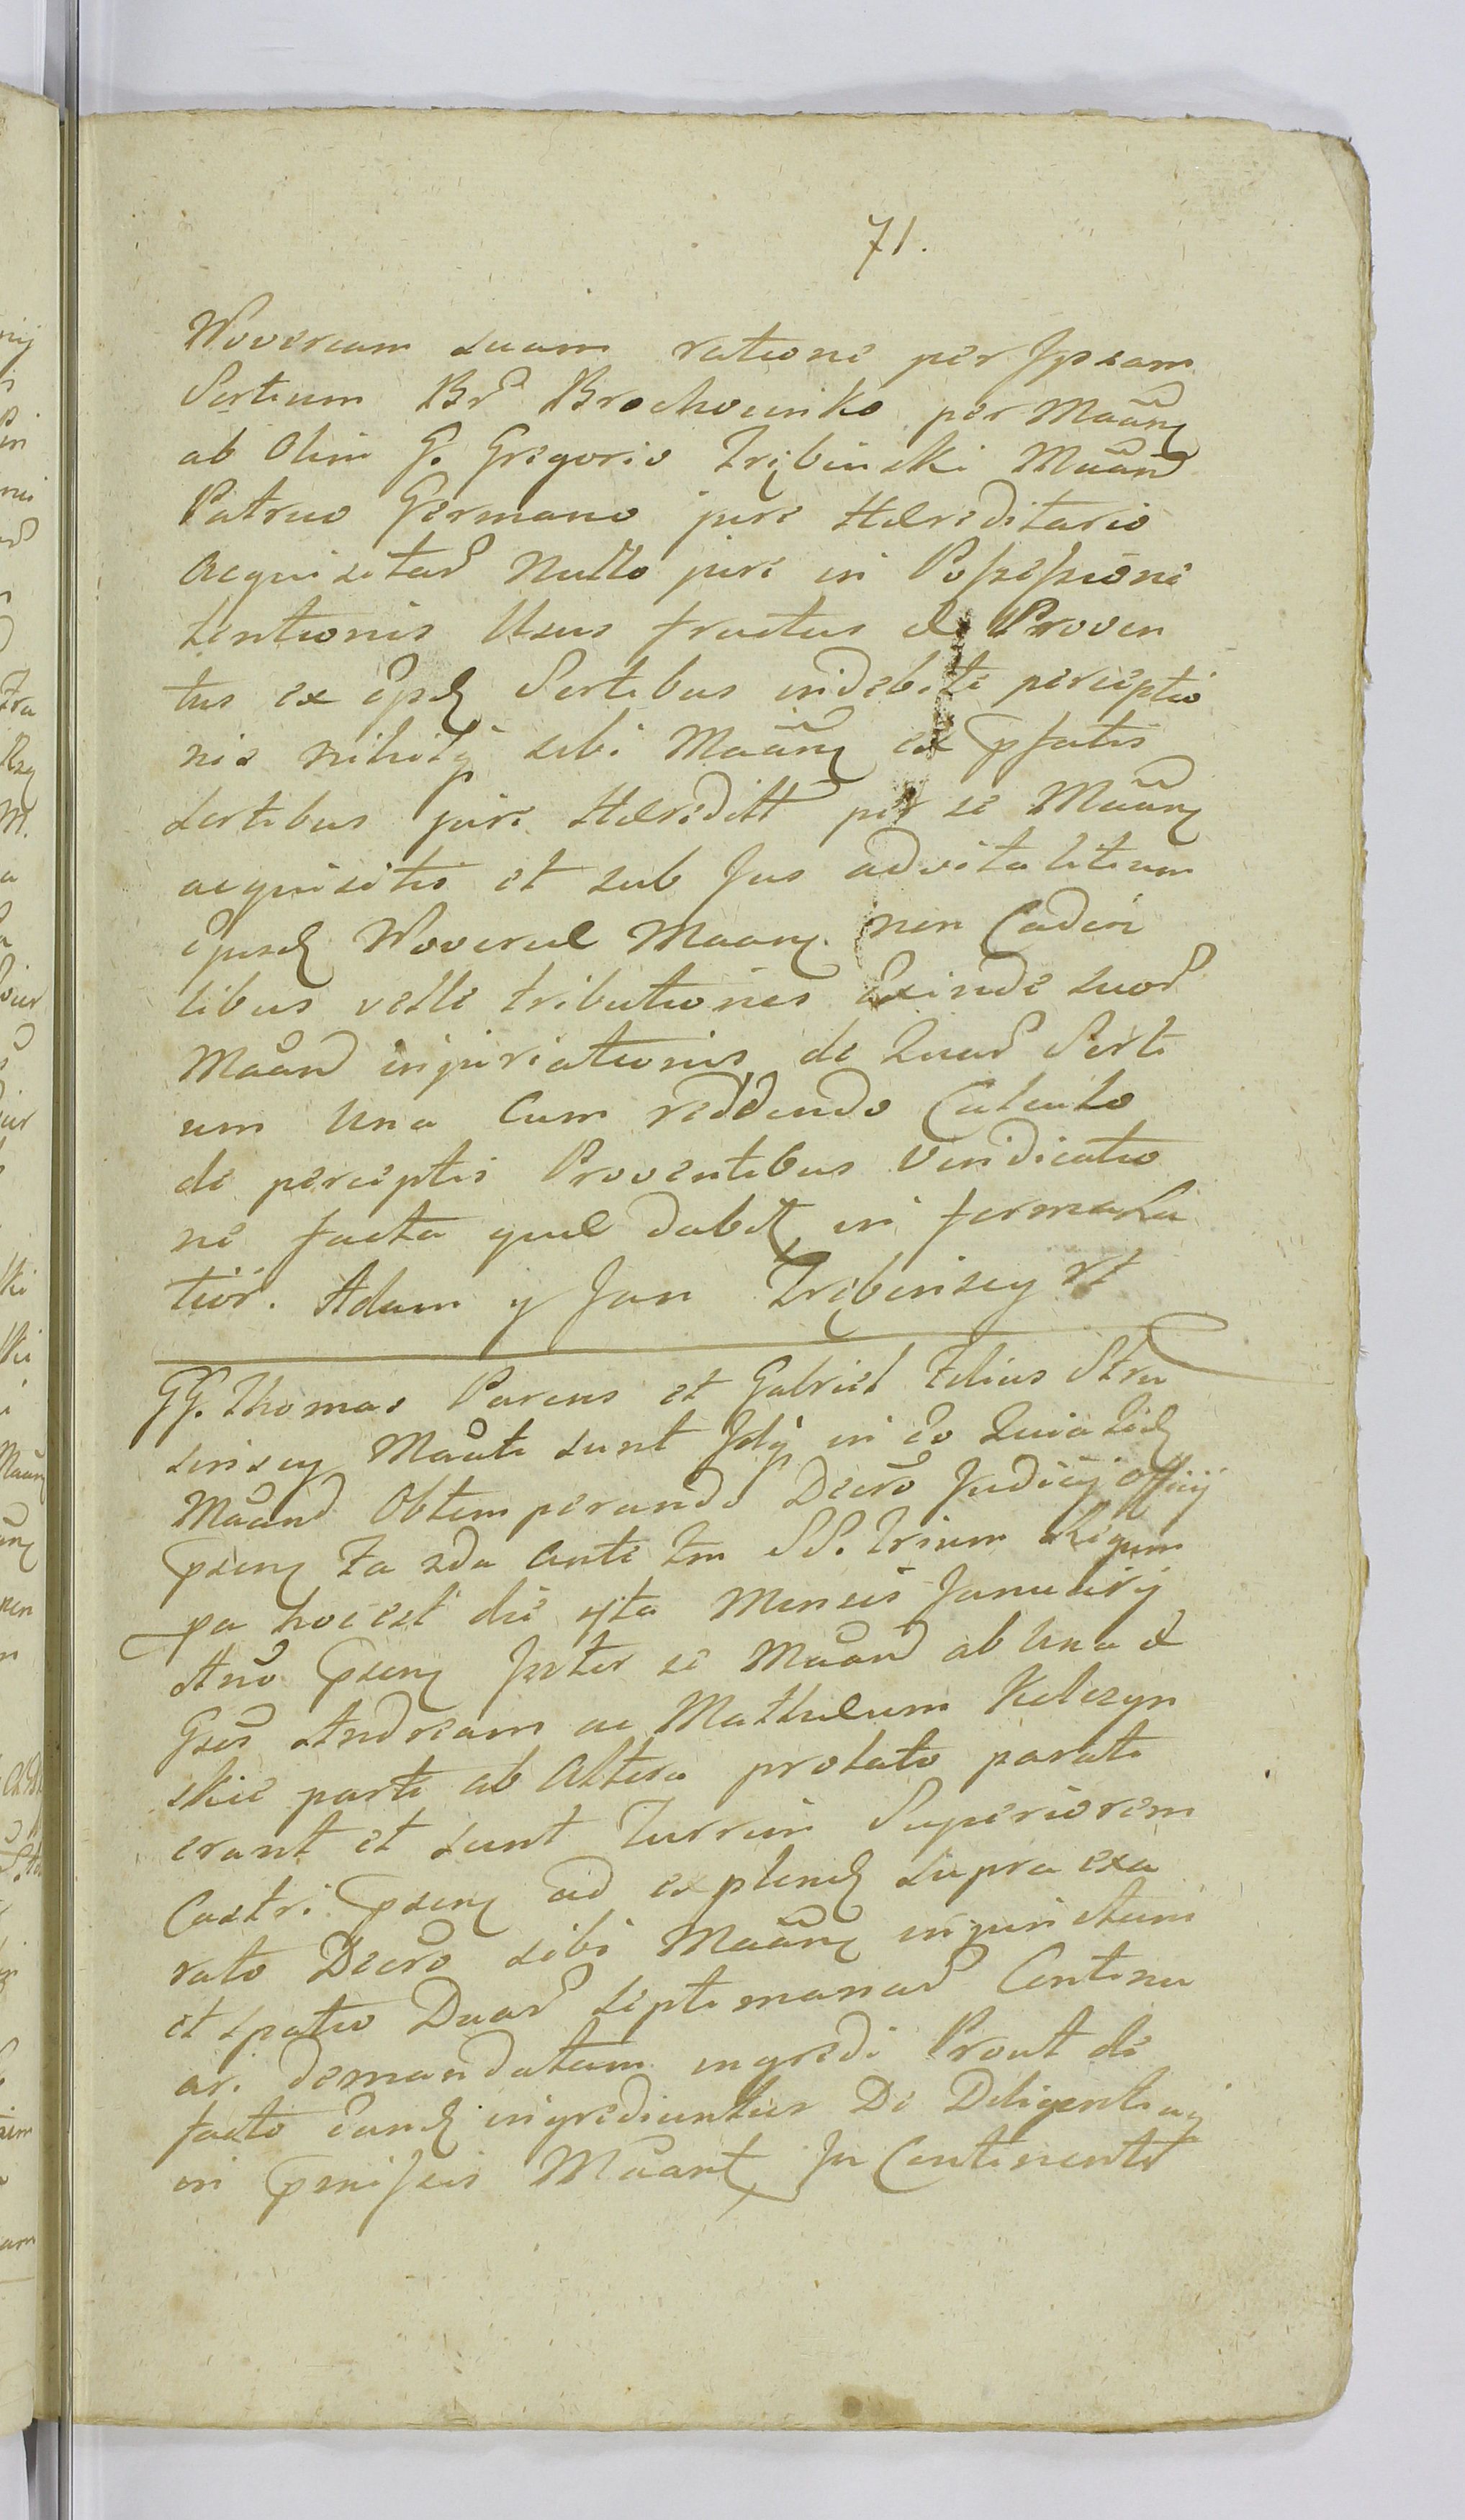 71.
Novercam suam ratione per Ipsam
Sortium Br Brochownko per Maāng
ab Olim G. Gregorio Trębinski Maand
Patruo Germano jure Hæreditario
acquisitar Nullo jure in Possessione
tentionis Usus fructus & Proven
tus ex ijsd Sortibus indebite perceptio
nis nihilq sibi Maāng ex pfatis
sortibus jure Hæreditt per se Maāng
acquisitis et sub Jus advitalitium
ejusd Novercæ Maang non Caden
tibus velle tributiones Exinde suor
Maand injuriationis de Quar Sorti
um Una Cum reddendo Calculo
de perceptis Proventibus Vindicatio
ne facta quæ dabit in forma La
tiör. Adam y Jan Trębinscy rt
GG. Thomas Parens et Gabriel Filius Stru
sinscy Maāti sunt Idq in Eo Quia Iid
Maand Obtemperando Decro Judicij Officij
pseng Fa 2da Ante Fm SS. Trium Regum
pa hoc est die 4ta Mensis Januarij
Ano pseng Inter se Maand ab Una &
Gsos Andream ac Mathæum Kelczyn
skie parte ab Altera prolato parati
erant et sunt Turrim Superiorem
Castri pseng ad explend supra exa
rato Decro sibi Maāng injunctam
et spatio Duar septimanar Continu
ari demandatam ingredi Prout de
facto Eand ingrediuntur De Diligentiaq
in pmissis Maant In Continenti